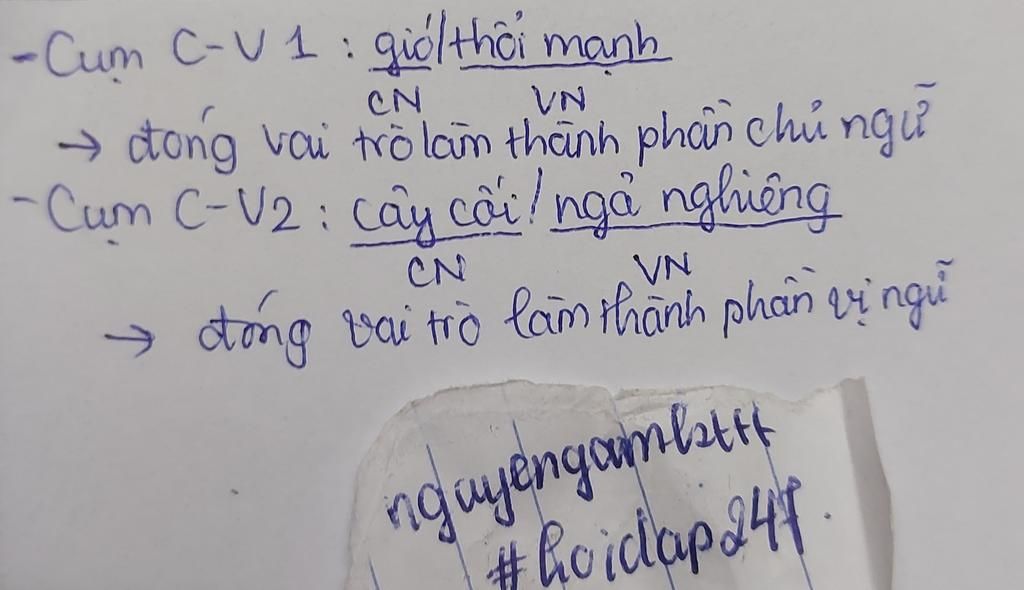 - Cụm C-V 1 : gió/thổi mạnh
CN VN
→ đóng vai trò làm thành phần chủ ngữ
- Cụm C-V2 : cây cối / ngả nghiêng
CN VN
→ đóng vai trò làm thành phần vị ngữ
#hoidap247.